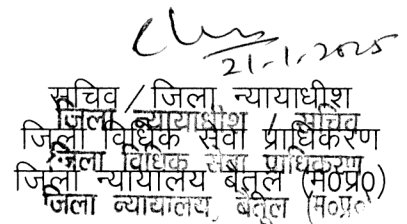 21-1-2025
सचिव / जिला न्यायाधीश
जिला न्यायाधीश / सचिव
जिला विधिक सेवा प्राधिकरण
जिला विधिक सेवा प्राधिकरण
जिला न्यायालय बैतूल (म0प्र0)
जिला न्यायालय, बैतूल (म0प्र0)